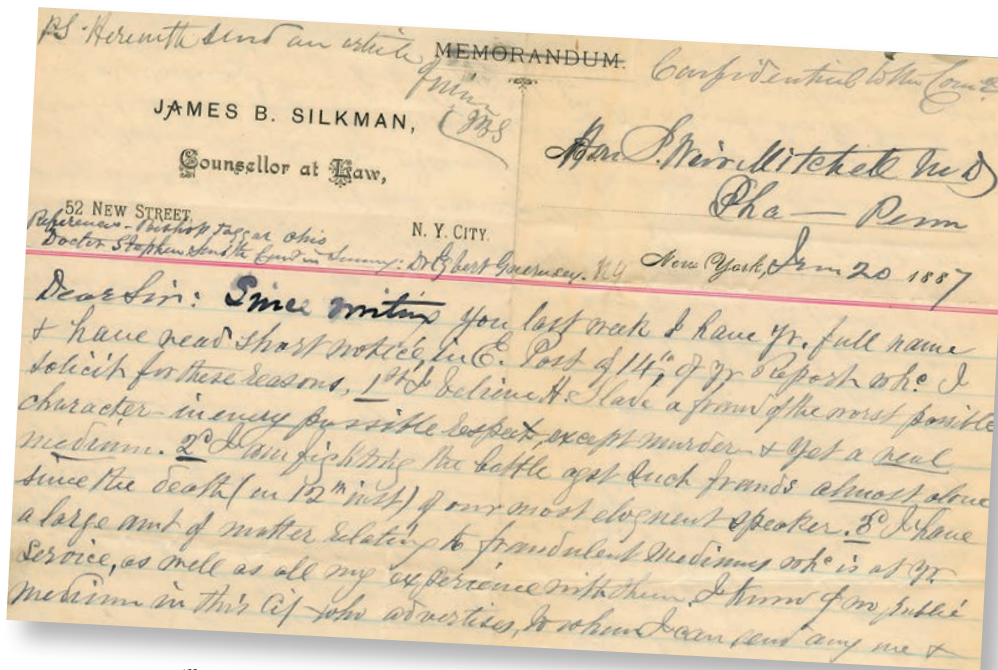 PS. Herewith send an article
of mine
JBS
MEMORANDUM.
Confidential to the Com
JAMES B. SILKMAN,
Counsellor at Law,
52 NEW STREET,
N. Y. CITY.
References - Bishop Taggar, Ohio
Doctor Stephen Smith Com in Lunacy: Dr Egbert Guernsey. NY
Hon S. Weir Mitchell M D
Pha — Penn
New York, Jun 20 1887
Dear Sir: Since writing you last week I have yr. full name
& have read short notice, in E. Post of 14", of yr Report whc I
solicit for these reasons, 1st I believe H. Slade a fraud of the worst possible
character - in every possible respect, except murder - & yet a real
medium. 2d I am fighting the battle agst such frauds almost alone
since the death (on 12th inst) of our most eloquent speaker. 3d I have
a large amt of matter relating to fraudulent mediums whc is at yr
service, as well as all my experience with them. I know of no public
medium in this City who advertises, to whom I can send any one &